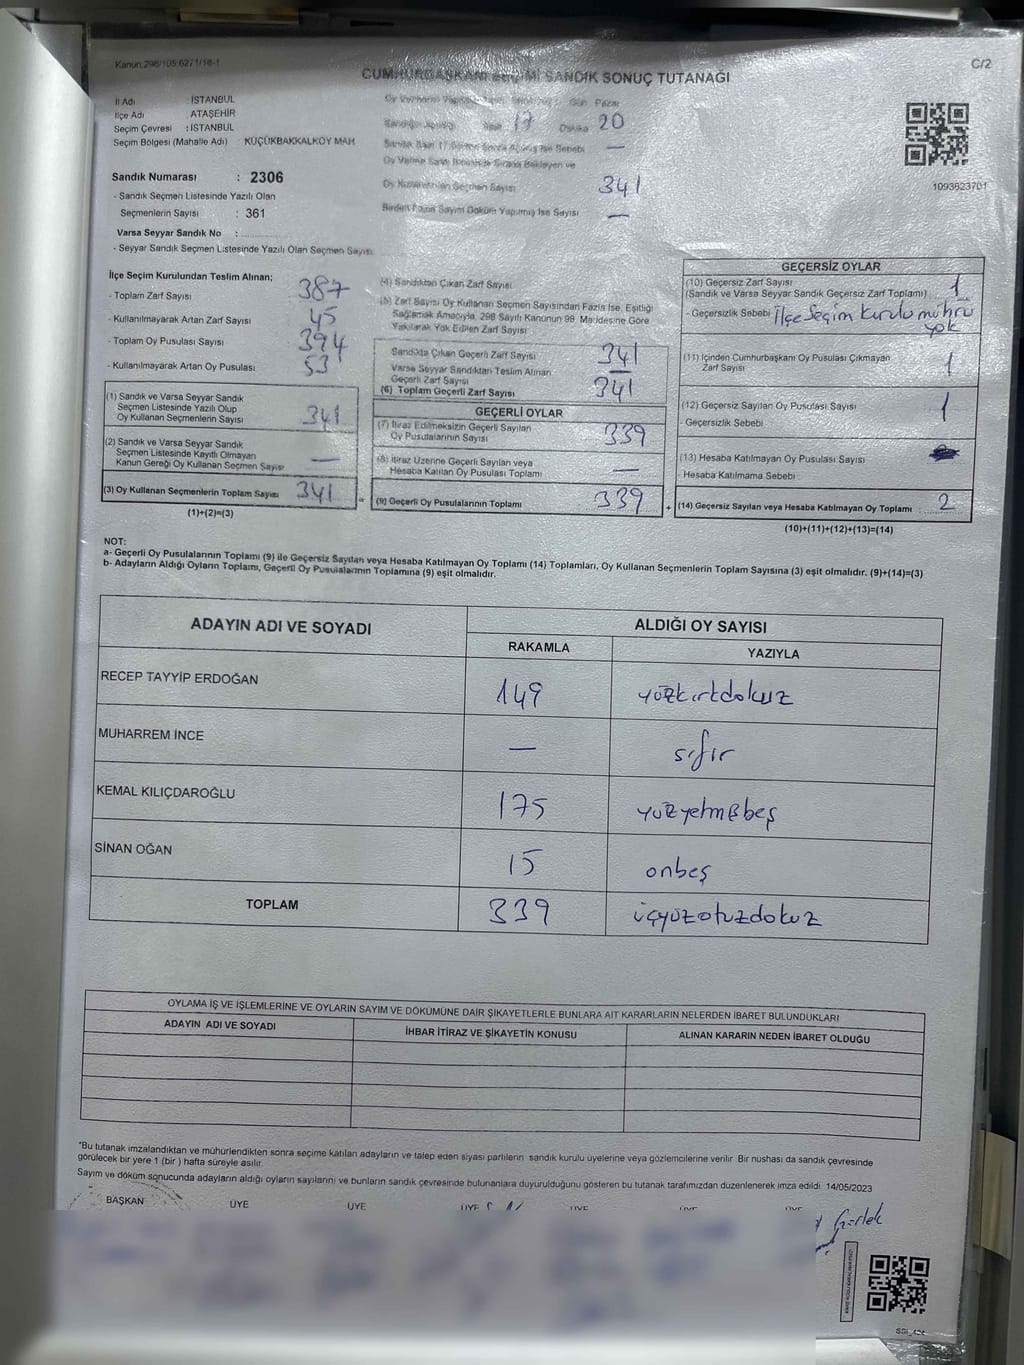 Kanun:298/105;6271/18-1
C/2
CUMHURBAŞKANI SEÇİMİ SANDIK SONUÇ TUTANAĞI
İl Adı : İSTANBUL
İlçe Adı : ATAŞEHİR
Seçim Çevresi : İSTANBUL
Seçim Bölgesi (Mahalle Adı) KÜÇÜKBAKKALKÖY MAH
Sandık Numarası : 2306
- Sandık Seçmen Listesinde Yazılı Olan
Seçmenlerin Sayısı : 361
Varsa Seyyar Sandık No :
- Seyyar Sandık Seçmen Listesinde Yazılı Olan Seçmen Sayısı
Gün Pazar
Saat 17 Dakika 20
—
Oy Verme Saati Bitiminde Sırada Bekleyen ve
Oy Kullanan Seçmen Sayısı 341
Birden Fazla Sayım Döküm Yapılmış İse Sayısı —
1093623701
İlçe Seçim Kurulundan Teslim Alınan;
- Toplam Zarf Sayısı 387
- Kullanılmayarak Artan Zarf Sayısı 45
- Toplam Oy Pusulası Sayısı 394
- Kullanılmayarak Artan Oy Pusulası 53
(1) Sandık ve Varsa Seyyar Sandık
Seçmen Listesinde Yazılı Olup
Oy Kullanan Seçmenlerin Sayısı 341
(2) Sandık ve Varsa Seyyar Sandık
Seçmen Listesinde Kayıtlı Olmayan
Kanun Gereği Oy Kullanan Seçmen Sayısı —
(3) Oy Kullanan Seçmenlerin Toplam Sayısı 341
(1)+(2)=(3)
(4) Sandıktan Çıkan Zarf Sayısı
(5) Zarf Sayısı Oy Kullanan Seçmen Sayısından Fazla İse, Eşitliği
Sağlamak Amacıyla, 298 Sayılı Kanunun 98. Maddesine Göre
Yakılarak Yok Edilen Zarf Sayısı
Sandıkta Çıkan Geçerli Zarf Sayısı 341
Varsa Seyyar Sandıktan Teslim Alınan
Geçerli Zarf Sayısı —
(6) Toplam Geçerli Zarf Sayısı 341
GEÇERLİ OYLAR
(7) İtiraz Edilmeksizin Geçerli Sayılan
Oy Pusulalarının Sayısı 339
(8) İtiraz Üzerine Geçerli Sayılan veya
Hesaba Katılan Oy Pusulası Toplamı —
= (9) Geçerli Oy Pusulalarının Toplamı 339
GEÇERSİZ OYLAR
(10) Geçersiz Zarf Sayısı
(Sandık ve Varsa Seyyar Sandık Geçersiz Zarf Toplamı) 1
- Geçersizlik Sebebi İlçe Seçim Kurulu mührü
yok
(11) İçinden Cumhurbaşkanı Oy Pusulası Çıkmayan
Zarf Sayısı 1
(12) Geçersiz Sayılan Oy Pusulası Sayısı 1
- Geçersizlik Sebebi
(13) Hesaba Katılmayan Oy Pusulası Sayısı
- Hesaba Katılmama Sebebi
+ (14) Geçersiz Sayılan veya Hesaba Katılmayan Oy Toplamı 2
(10)+(11)+(12)+(13)=(14)
NOT:
a- Geçerli Oy Pusulalarının Toplamı (9) ile Geçersiz Sayılan veya Hesaba Katılmayan Oy Toplamı (14) Toplamları, Oy Kullanan Seçmenlerin Toplam Sayısına (3) eşit olmalıdır. (9)+(14)=(3)
b- Adayların Aldığı Oyların Toplamı, Geçerli Oy Pusulalarının Toplamına (9) eşit olmalıdır.
ADAYIN ADI VE SOYADI
ALDIĞI OY SAYISI
RAKAMLA YAZIYLA
RECEP TAYYİP ERDOĞAN 149 yüzkırkdokuz
MUHARREM İNCE — sıfır
KEMAL KILIÇDAROĞLU 175 yüzyetmişbeş
SİNAN OĞAN 15 onbeş
TOPLAM 339 üçyüzotuzdokuz
OYLAMA İŞ VE İŞLEMLERİNE VE OYLARIN SAYIM VE DÖKÜMÜNE DAİR ŞİKAYETLERLE BUNLARA AİT KARARLARIN NELERDEN İBARET BULUNDUKLARI
ADAYIN ADI VE SOYADI İHBAR İTİRAZ VE ŞİKAYETİN KONUSU ALINAN KARARIN NEDEN İBARET OLDUĞU
*Bu tutanak imzalandıktan ve mühürlendikten sonra seçime katılan adayların ve talep eden siyasi partilerin sandık kurulu üyelerine veya gözlemcilerine verilir. Bir nüshası da sandık çevresinde
görülecek bir yere 1 (bir ) hafta süreyle asılır.
Sayım ve döküm sonucunda adayların aldığı oyların sayılarını ve bunların sandık çevresinde bulunanlara duyurulduğunu gösteren bu tutanak tarafımızdan düzenlenerek imza edildi. 14/05/2023
BAŞKAN ÜYE ÜYE ÜYE ÜYE ÜYE ÜYE